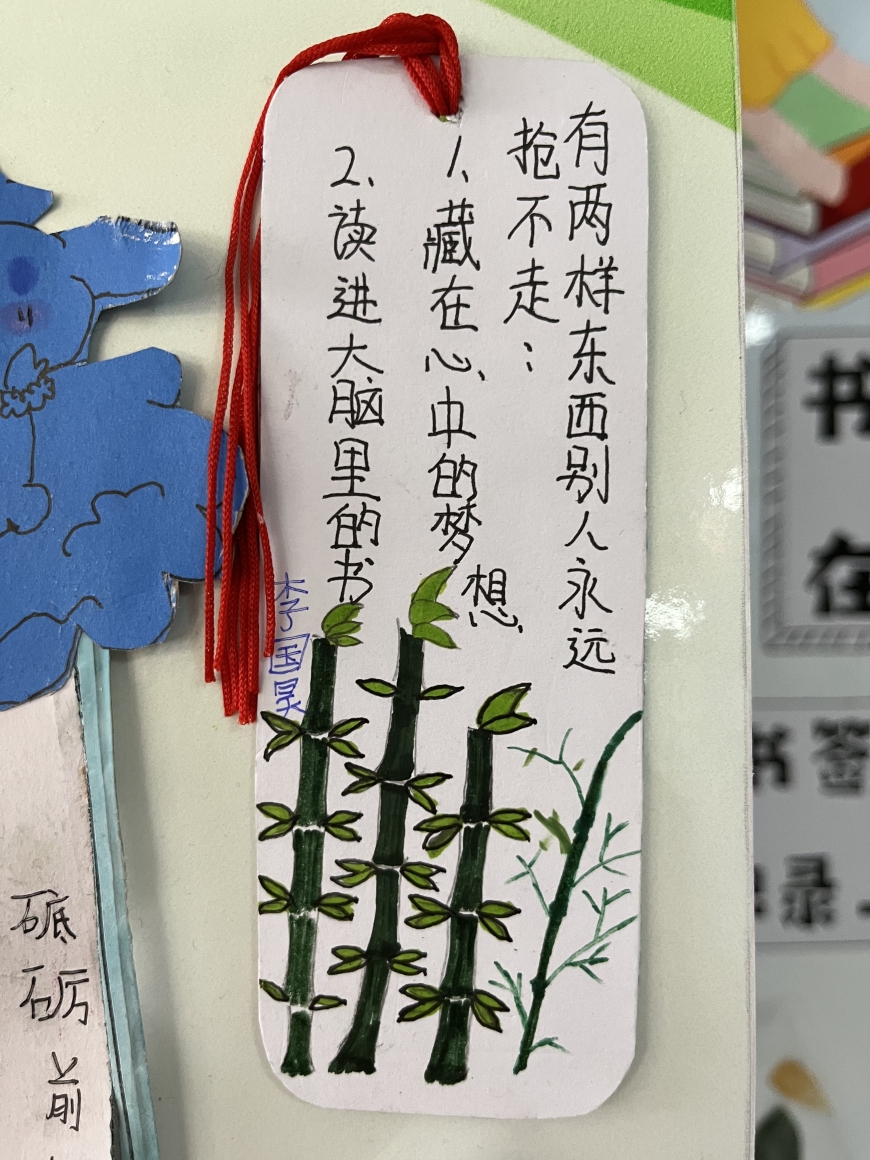 有两样东西别人永远
抢不走：
1、藏在心中的梦想
2、读进大脑里的书
李国昊
砥砺前
书
在
书签
录